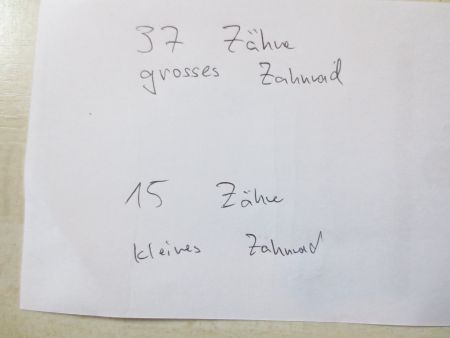 37 Zähne
grosses Zahnrad
15 Zähne
kleines Zahnrad